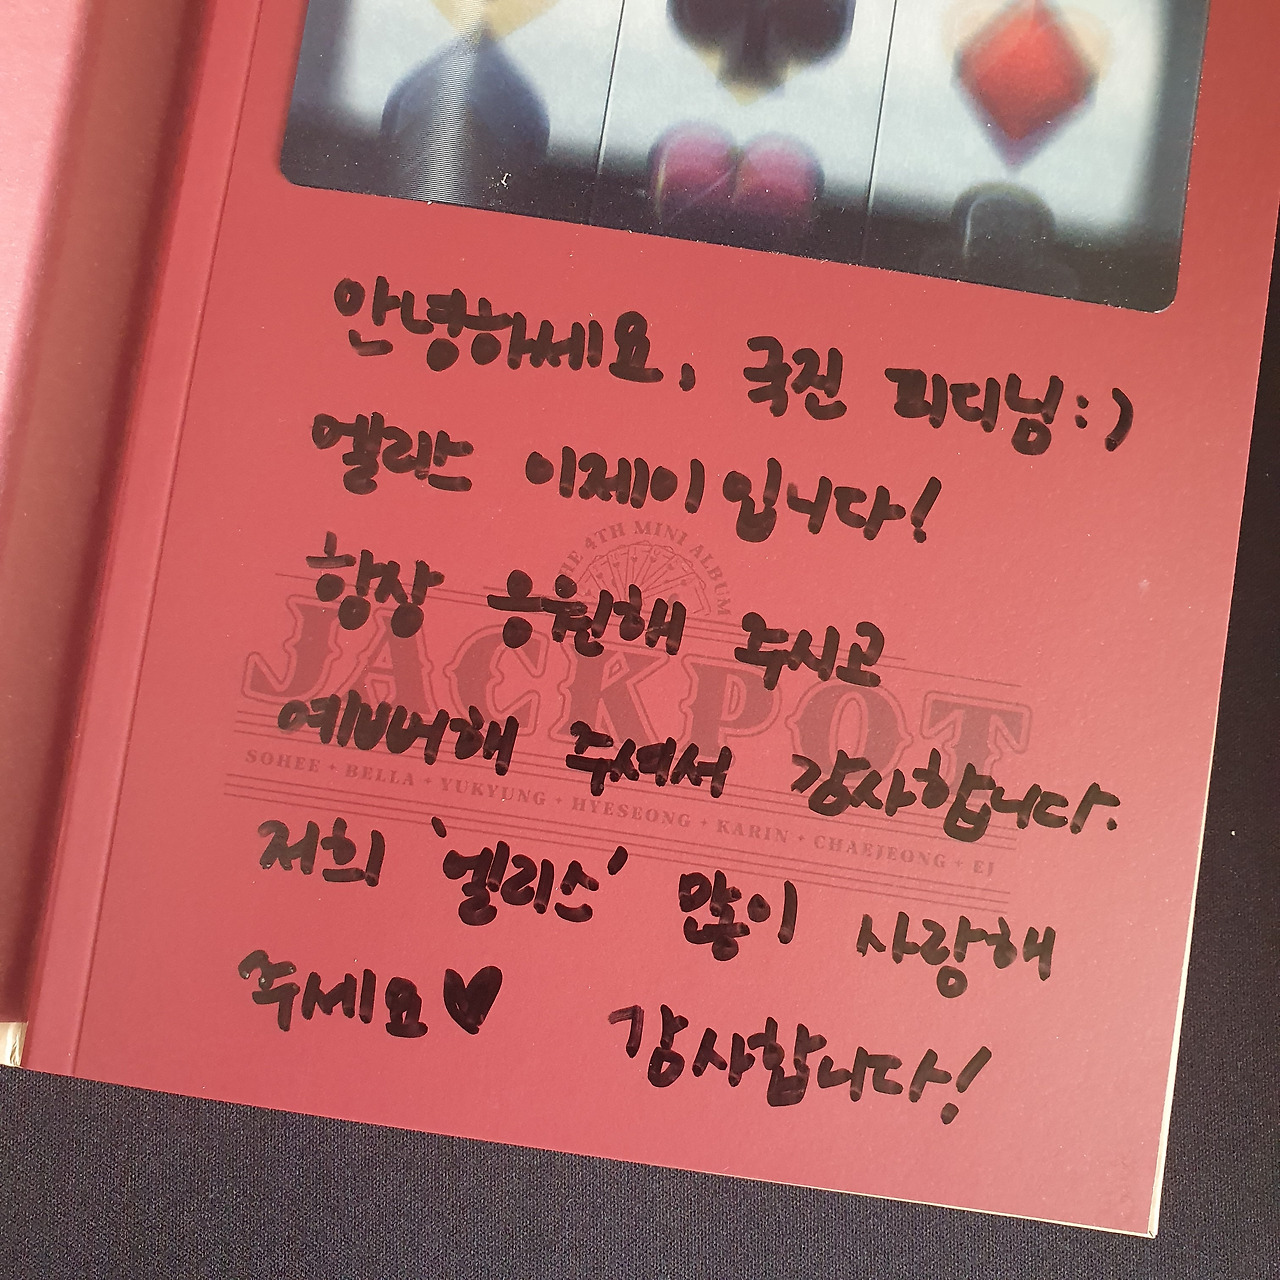 안녕하세요, 국진 피디님:)
엘리스 이제이입니다!
항상 응원해 주시고
예뻐해 주셔서 감사합니다.
저희 '엘리스' 많이 사랑해
주세요♥ 감사합니다!
THE 4TH MINI ALBUM
JACKPOT
SOHEE + BELLA + YUKYUNG + HYESEONG + KARIN + CHAEJEONG + EJ